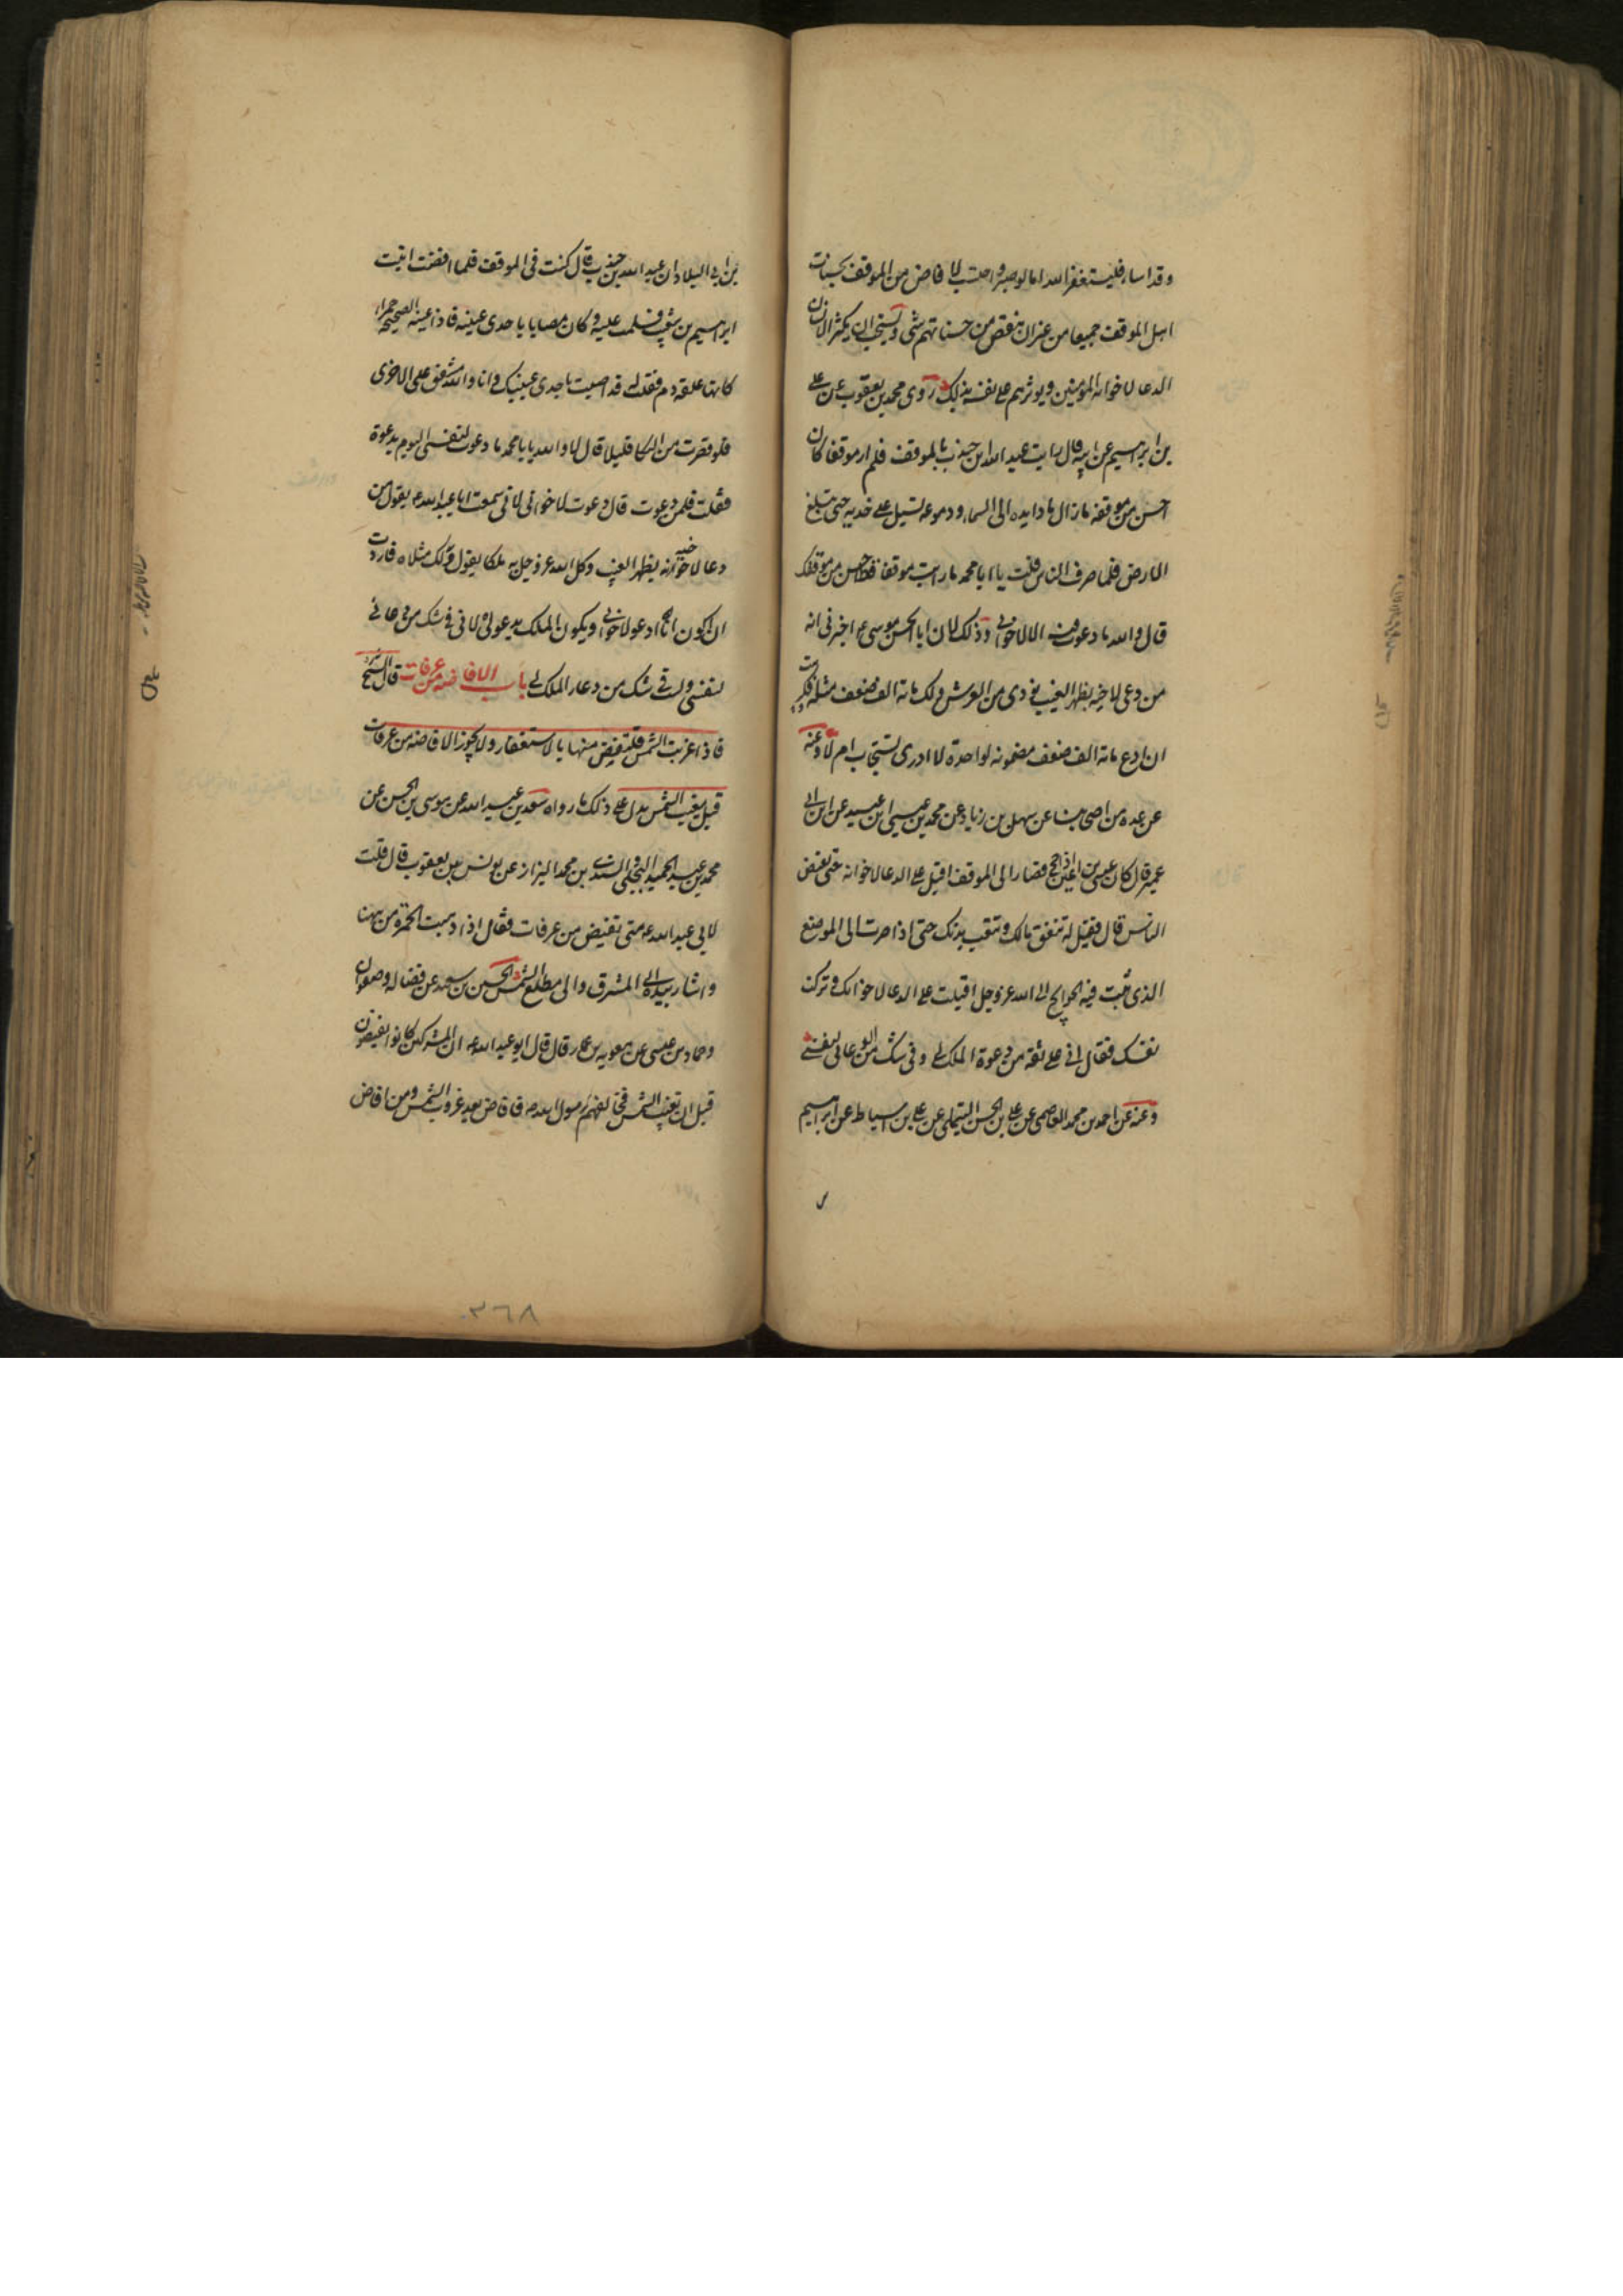 وقد اساء فليستغفر الله اما لو صبر واحتسب لافاض من الموقف بحسنات
اهل الموقف جميعا من غير ان ينقص من حسناتهم شي ويستحب ان يكثر الانسان
الدعا لاخوانه المومنين ويوثرهم على نفسه بذلك روى محمد بن يعقوب عن على
بن ابرهيم عن ابيه قال رايت عبد الله بن جندب بالموقف فلم ار موقفا كان
احسن من موقفه ما زال مادا يده الى السماء ودموعه تسيل على خديه حتى تبلغ
الارض فلما صرف الناس قلت يا ابا محمد ما رايت موقفا قط احسن من موقفك
قال والله ما دعوت فيه الا لاخواني وذلك لان ابا الحسن موسى ع اخبرني انه
من دعى لاخيه بظهر الغيب نودى من العرش ولك ماية الف ضعف مثله فكرهت
ان ادع ماية الف ضعف مضمونه لواحدة لا ادرى تستجاب ام لا وعنه
عن عده من اصحابنا عن سهل بن زياد عن محمد بن عيسى ابن عبيد عن ابن ابى
عمير قال كان عيسى بن اعين اذا حج فصار الى الموقف اقبل على الدعا لاخوانه حتى يفيض
الناس قال فقيل له تنفق مالك وتتعب بدنك حتى اذا صرت الى الموضع
الذى تبث فيه الحوايج الى الله عز وجل اقبلت على الدعا لاخوانك وتركت
نفسك فقال انى على ثقة من دعوة الملك لى وفى شك من الدعا لنفسى
وعنه عن احمد بن محمد العاصمى عن على بن الحسن التيملى عن على بن اسباط عن ابراهيم
بن ابى البلاد ان عبد الله بن جندب قال كنت فى الموقف فلما افضت اتيت
ابراهيم بن شعيب فسلمت عليه وكان مصابا باحدى عينيه فاذا عينه الصحيحه حمرا
كانها علقه دم فقلت له قد اصبت باحدى عينيك وانا والله مشفق على الاخرى
فلو قصرت من البكا قليلا قال لا والله يا با محمد ما دعوت لنفسى اليوم بدعوة
فقلت فلمن دعوت قال دعوت لاخوانى لانى سمعت ابا عبد الله ع يقول من
دعا لاخيه بظهر الغيب وكل الله عز وجل به ملكا يقول ولك مثلاه فاردت
ان اكون انا ادعو لاخوانى ويكون الملك يدعو لى لانى فى شك من دعائى
لنفسى ولست فى شك من دعاء الملك لى باب الافاضه من عرفات قال الشيخ
فاذا غربت الشمس فليفض منها بالاستغفار ولا يجوز الافاضه من عرفات
قبل مغيب الشمس يدل على ذلك ما رواه سعد بن عبد الله عن موسى بن الحسن عن
محمد بن عبد الحميد البجلى والسندى بن محمد البزاز عن يونس بن يعقوب قال قلت
لابى عبد الله ع متى تفيض من عرفات فقال اذا ذهبت الحمرة من ههنا
واشار بيده الى المشرق والى مطلع الشمس الحسين بن سعيد عن فضاله وصفوان
وحماد بن عيسى عن معويه بن عمار قال قال ابو عبد الله ع ان المشركين كانوا يفيضون
قبل ان تغيب الشمس فخالفهم رسول الله ص فافاض بعد غروب الشمس ومن افاض
٣٦٨